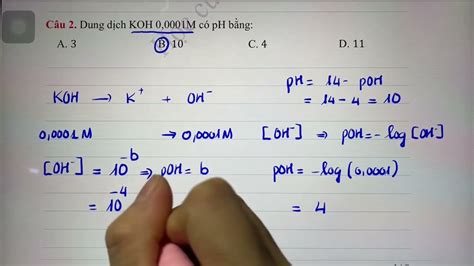 Câu 2. Dung dịch KOH 0,0001M có pH bằng:
A. 3 B. 10 C. 4 D. 11
pH = 14 - pOH
= 14 - 4 = 10
KOH → K⁺ + OH⁻
0,0001M → 0,0001M [OH⁻] ⇒ pOH = -log[OH⁻]
[OH⁻] = 10⁻ᵇ ⇒ pOH = b pOH = -log(0,0001)
= 10⁻⁴ = 4